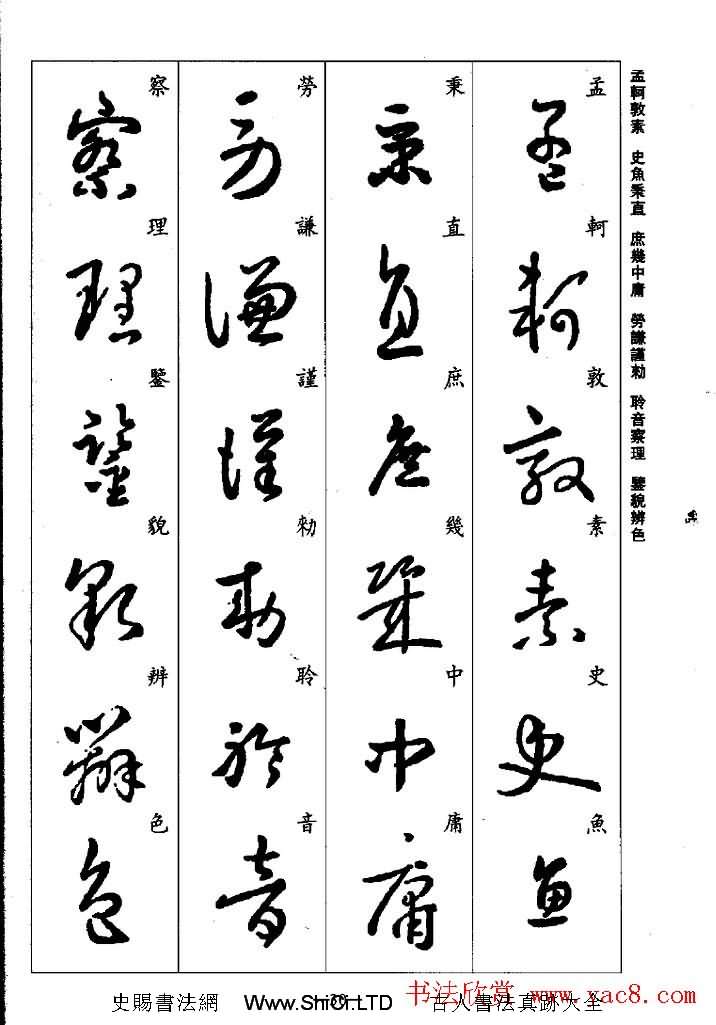 孟軻敦素 史魚秉直 庶幾中庸 勞謙謹勅 聆音察理 鑒貌辨色
孟軻敦素史魚
秉直庶幾中庸
勞謙謹勅聆音
察理鑒貌辨色
史賜書法網 Www.ShiCi.LTD 古人書法真跡大全
书法欣赏 www.yac8.com